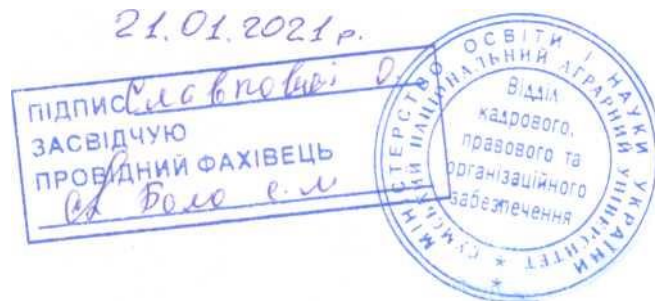 21.01.2021 р.
ПІДПИС
ЗАСВІДЧУЮ
ПРОВІДНИЙ ФАХІВЕЦЬ
МІНІСТЕРСТВО ОСВІТИ І НАУКИ УКРАЇНИ
СУМСЬКИЙ НАЦІОНАЛЬНИЙ АГРАРНИЙ УНІВЕРСИТЕТ
Відділ
кадрового,
правового та
організаційного
забезпечення